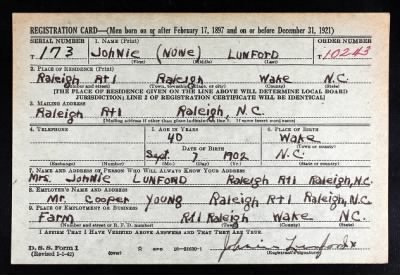 REGISTRATION CARD—(Men born on or after February 17, 1897 and on or before December 31, 1921)
SERIAL NUMBER 1. NAME (Print) ORDER NUMBER
T 173 JOHNIE (NONE) LUNFORD T10243
(First) (Middle) (Last)
2. PLACE OF RESIDENCE (Print)
Raleigh Rt1 Raleigh Wake N.C.
(Number and street) (Town, township, village, or city) (County) (State)
[THE PLACE OF RESIDENCE GIVEN ON THE LINE ABOVE WILL DETERMINE LOCAL BOARD
JURISDICTION; LINE 2 OF REGISTRATION CERTIFICATE WILL BE IDENTICAL]
3. MAILING ADDRESS
Raleigh Rt1 Raleigh, N.C.
[Mailing address if other than place indicated on line 2. If same insert word same]
4. TELEPHONE 5. AGE IN YEARS 6. PLACE OF BIRTH
40 Wake
DATE OF BIRTH (Town or county)
Sept. 7 1902 N.C.
(Exchange) (Number) (Mo.) (Day) (Yr.) (State or country)
7. NAME AND ADDRESS OF PERSON WHO WILL ALWAYS KNOW YOUR ADDRESS
Mrs. Johnie LUNFORD Raleigh Rt1 Raleigh, N.C.
8. EMPLOYER'S NAME AND ADDRESS
Mr. Cooper Young Raleigh Rt1 Raleigh, N.C.
9. PLACE OF EMPLOYMENT OR BUSINESS
Farm Rt1 Raleigh Wake N.C.
(Number and street or R. F. D. number) (Town) (County) (State)
I AFFIRM THAT I HAVE VERIFIED ABOVE ANSWERS AND THAT THEY ARE TRUE.
D. S. S. Form 1 (over)
(Revised 1-1-42) Lunford